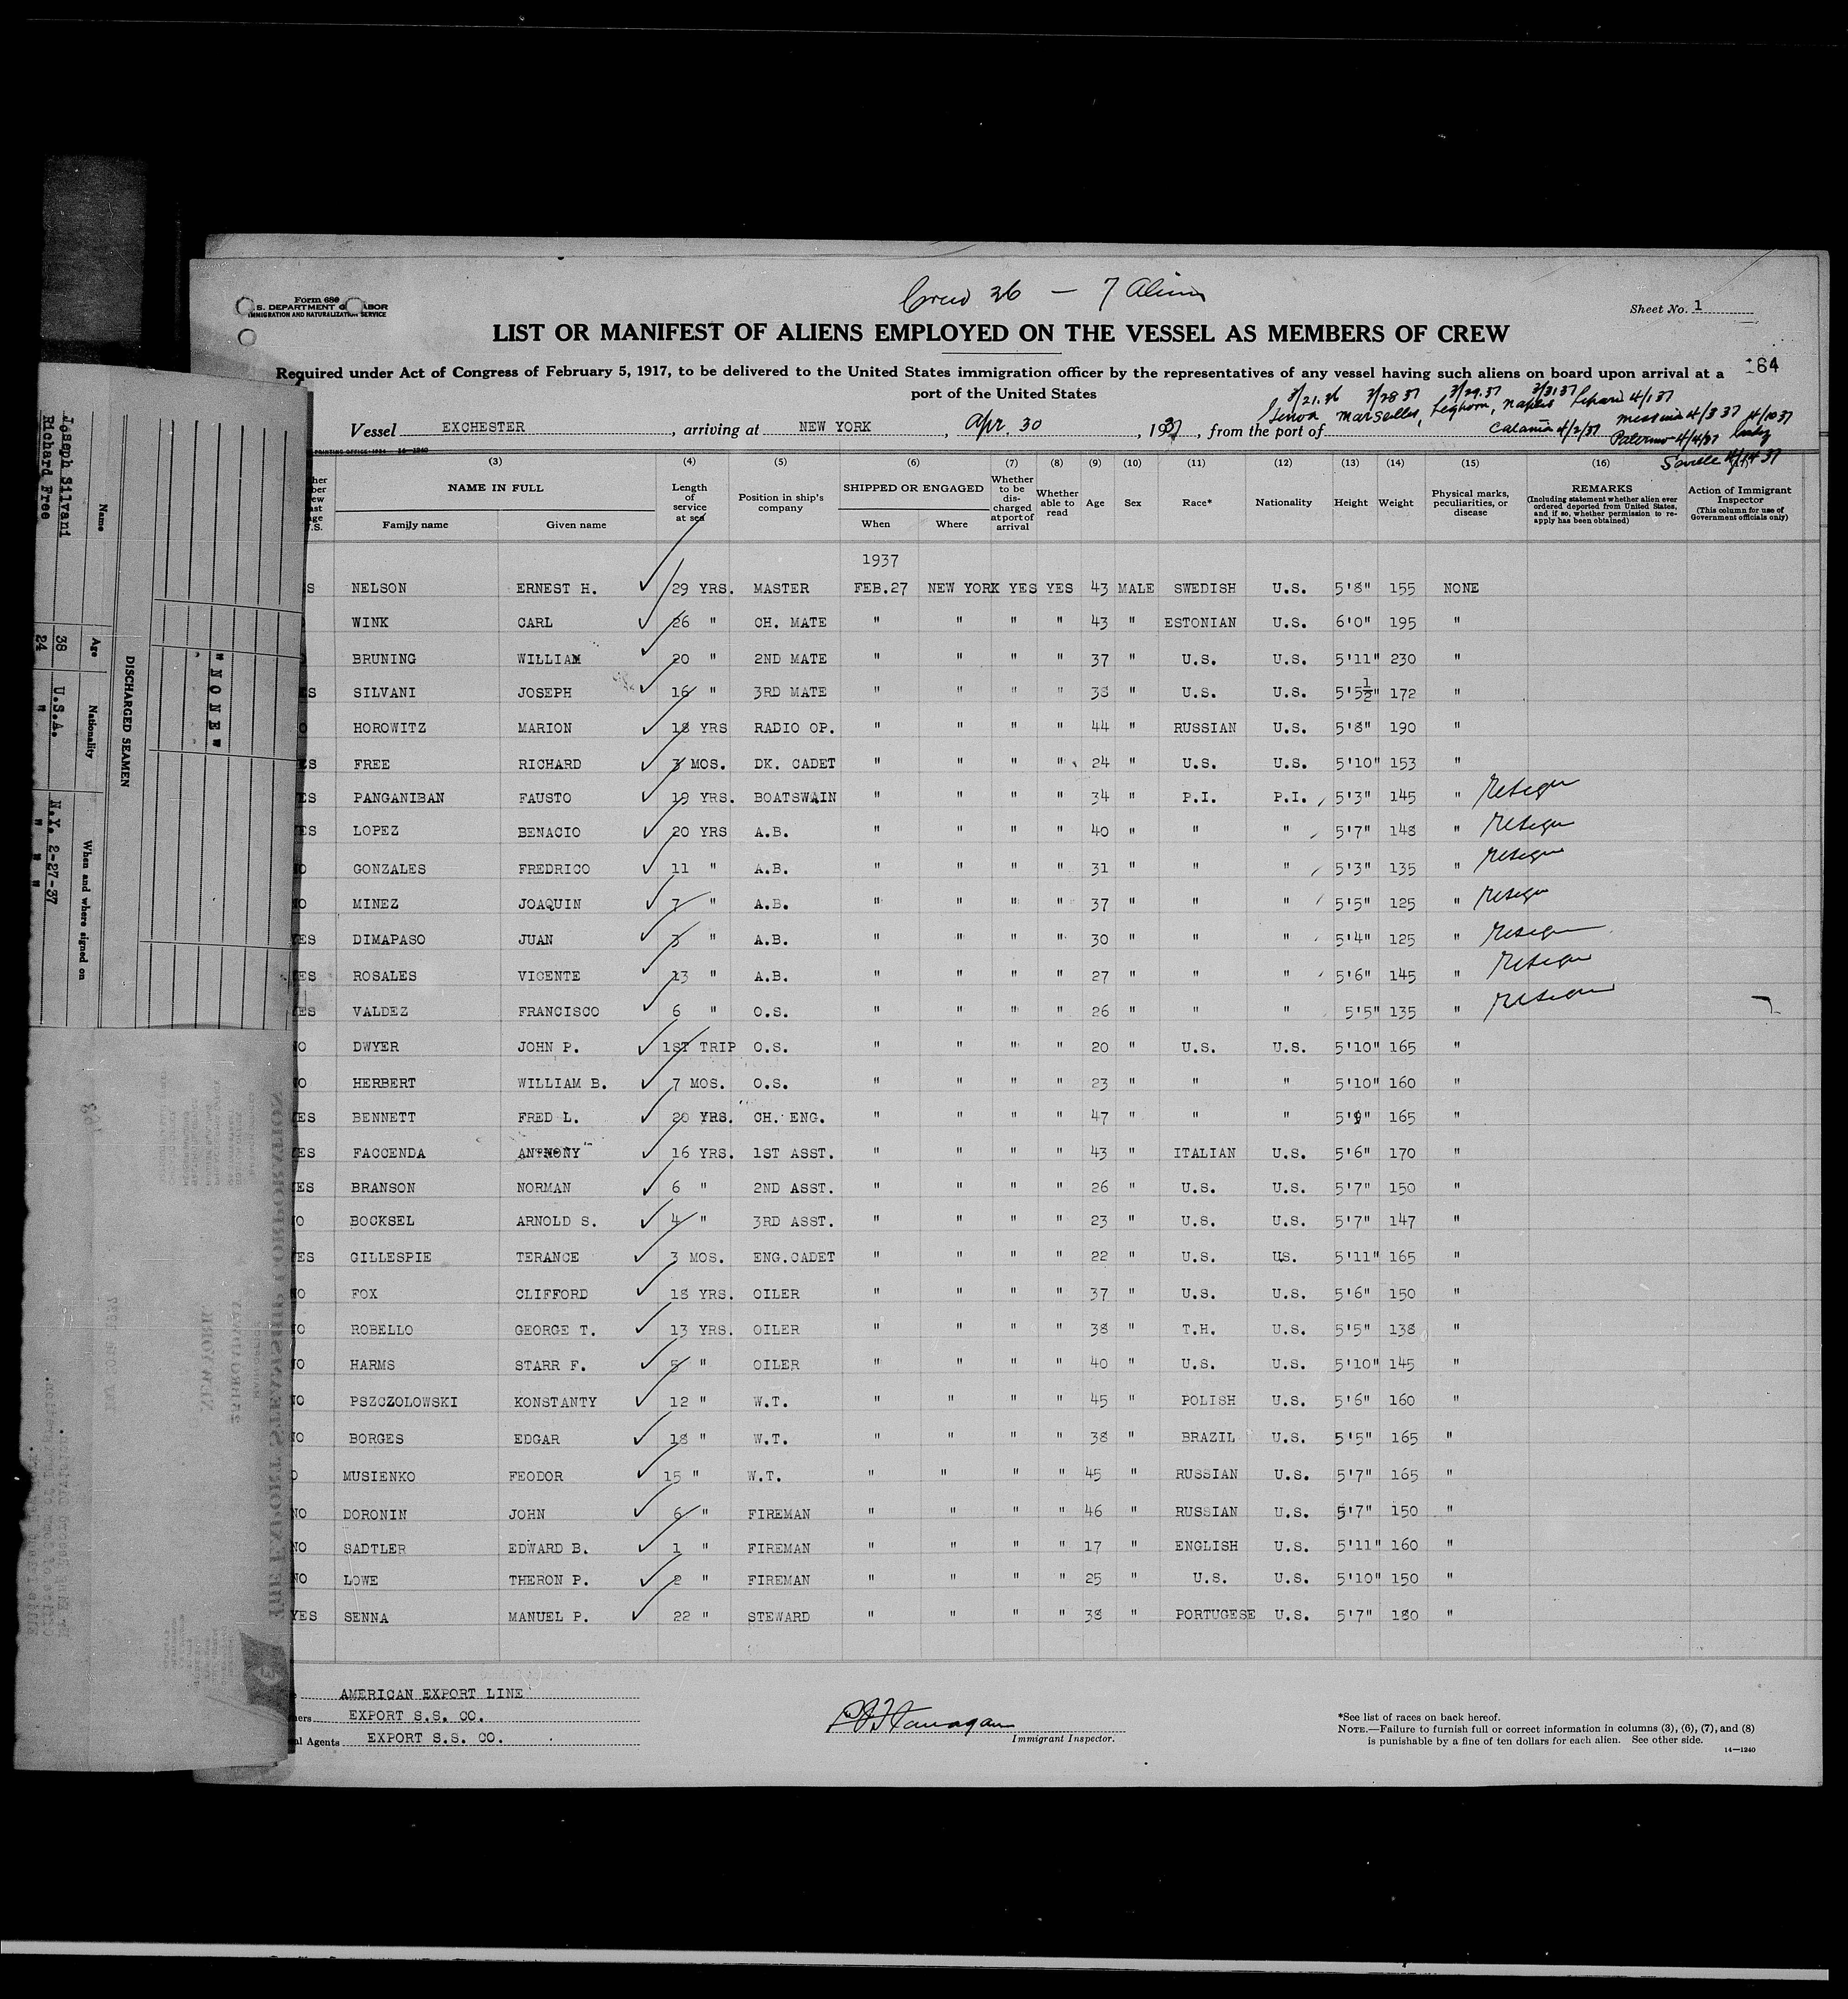 Crew 36 — 7 Aliens
Form 680
S. DEPARTMENT OF LABOR
IMMIGRATION AND NATURALIZATION SERVICE
Sheet No. 1
LIST OR MANIFEST OF ALIENS EMPLOYED ON THE VESSEL AS MEMBERS OF CREW
184
Required under Act of Congress of February 5, 1917, to be delivered to the United States immigration officer by the representatives of any vessel having such aliens on board upon arrival at a
port of the United States
3/21.36 3/28 37 3/29.37 3/31 37
Genoa Marseilles, Leghorn, Naples Lipari 4/1 37
Messina 4/3 37 4/10 37
Vessel EXCHESTER, arriving at NEW YORK, Apr. 30, 1937, from the port of
Catania 4/2/37 Palermo 4/4/37
Seville 4/14 37
(3) (4) (5) (6) (7) (8) (9) (10) (11) (12) (13) (14) (15) (16)
NAME IN FULL
Family name Given name
Length of service at sea
Position in ship's company
SHIPPED OR ENGAGED
When Where
Whether to be discharged at port of arrival
Whether able to read
Age Sex Race* Nationality Height Weight
Physical marks, peculiarities, or disease
REMARKS
(Including statement whether alien ever ordered deported from United States, and if so, whether permission to re-apply has been obtained)
Action of Immigrant Inspector
(This column for use of Government officials only)
1937
S NELSON ERNEST H. 29 YRS. MASTER FEB.27 NEW YORK YES YES 43 MALE SWEDISH U.S. 5'8" 155 NONE
WINK CARL 26 " CH. MATE " " " " 43 " ESTONIAN U.S. 6'0" 195 "
BRUNING WILLIAM 20 " 2ND MATE " " " " 37 " U.S. U.S. 5'11" 230 "
ES SILVANI JOSEPH 16 " 3RD MATE " " " " 38 " U.S. U.S. 5'5½" 172 "
O HOROWITZ MARION 18 YRS RADIO OP. " " " " 44 " RUSSIAN U.S. 5'8" 190 "
ES FREE RICHARD 3 MOS. DK. CADET " " " " 24 " U.S. U.S. 5'10" 153 "
ES PANGANIBAN FAUSTO 19 YRS. BOATSWAIN " " " " 34 " P.I. P.I. 5'3" 145 "
ES LOPEZ BENACIO 20 YRS A.B. " " " " 40 " " " 5'7" 148 "
NO GONZALES FREDRICO 11 " A.B. " " " " 31 " " " 5'3" 135 "
NO MINEZ JOAQUIN 7 " A.B. " " " " 37 " " " 5'5" 125 "
YES DIMAPASO JUAN 3 " A.B. " " " " 30 " " " 5'4" 125 "
YES ROSALES VICENTE 13 " A.B. " " " " 27 " " " 5'6" 145 "
YES VALDEZ FRANCISCO 6 " O.S. " " " " 26 " " " 5'5" 135 "
NO DWYER JOHN P. 1ST TRIP O.S. " " " " 20 " U.S. U.S. 5'10" 165 "
NO HERBERT WILLIAM B. 7 MOS. O.S. " " " " 23 " " " 5'10" 160 "
YES BENNETT FRED L. 20 YRS. CH. ENG. " " " " 47 " " " 5'9" 165 "
YES FACCENDA ANTHONY 16 YRS. 1ST ASST. " " " " 43 " ITALIAN U.S. 5'6" 170 "
YES BRANSON NORMAN 6 " 2ND ASST. " " " " 26 " U.S. U.S. 5'7" 150 "
NO BOCKSEL ARNOLD S. 4 " 3RD ASST. " " " " 23 " U.S. U.S. 5'7" 147 "
YES GILLESPIE TERANCE 3 MOS. ENG.CADET " " " " 22 " U.S. US. 5'11" 165 "
NO FOX CLIFFORD 18 YRS. OILER " " " " 37 " U.S. U.S. 5'6" 150 "
NO ROBELLO GEORGE T. 13 YRS. OILER " " " " 38 " T.H. U.S. 5'5" 138 "
NO HARMS STARR F. 5 " OILER " " " " 40 " U.S. U.S. 5'10" 145 "
NO PSZCZOLOWSKI KONSTANTY 12 " W.T. " " " " 45 " POLISH U.S. 5'6" 160 "
NO BORGES EDGAR 18 " W.T. " " " " 38 " BRAZIL U.S. 5'5" 165 "
O MUSIENKO FEODOR 15 " W.T. " " " " 45 " RUSSIAN U.S. 5'7" 165 "
NO DORONIN JOHN 6 " FIREMAN " " " " 46 " RUSSIAN U.S. 5'7" 150 "
NO SADTLER EDWARD B. 1 " FIREMAN " " " " 17 " ENGLISH U.S. 5'11" 160 "
NO LOWE THERON P. 2 " FIREMAN " " " " 25 " U.S. U.S. 5'10" 150 "
YES SENNA MANUEL P. 22 " STEWARD " " " " 38 " PORTUGESE U.S. 5'7" 180 "
AMERICAN EXPORT LINE
EXPORT S.S. CO.
al Agents EXPORT S.S. CO.
Immigrant Inspector.
*See list of races on back hereof.
NOTE.—Failure to furnish full or correct information in columns (3), (6), (7), and (8)
is punishable by a fine of ten dollars for each alien. See other side.
14—1240
DISCHARGED SEAMEN
Name Age Nationality When and where signed on
Joseph Silvani 38 U.S.A. N.Y. 2-27-37
Richard Free 24 " " "
" N O N E "